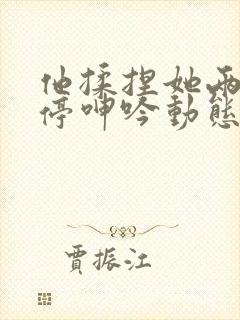 他揉捏她兩
停呻吟動態
賈振江